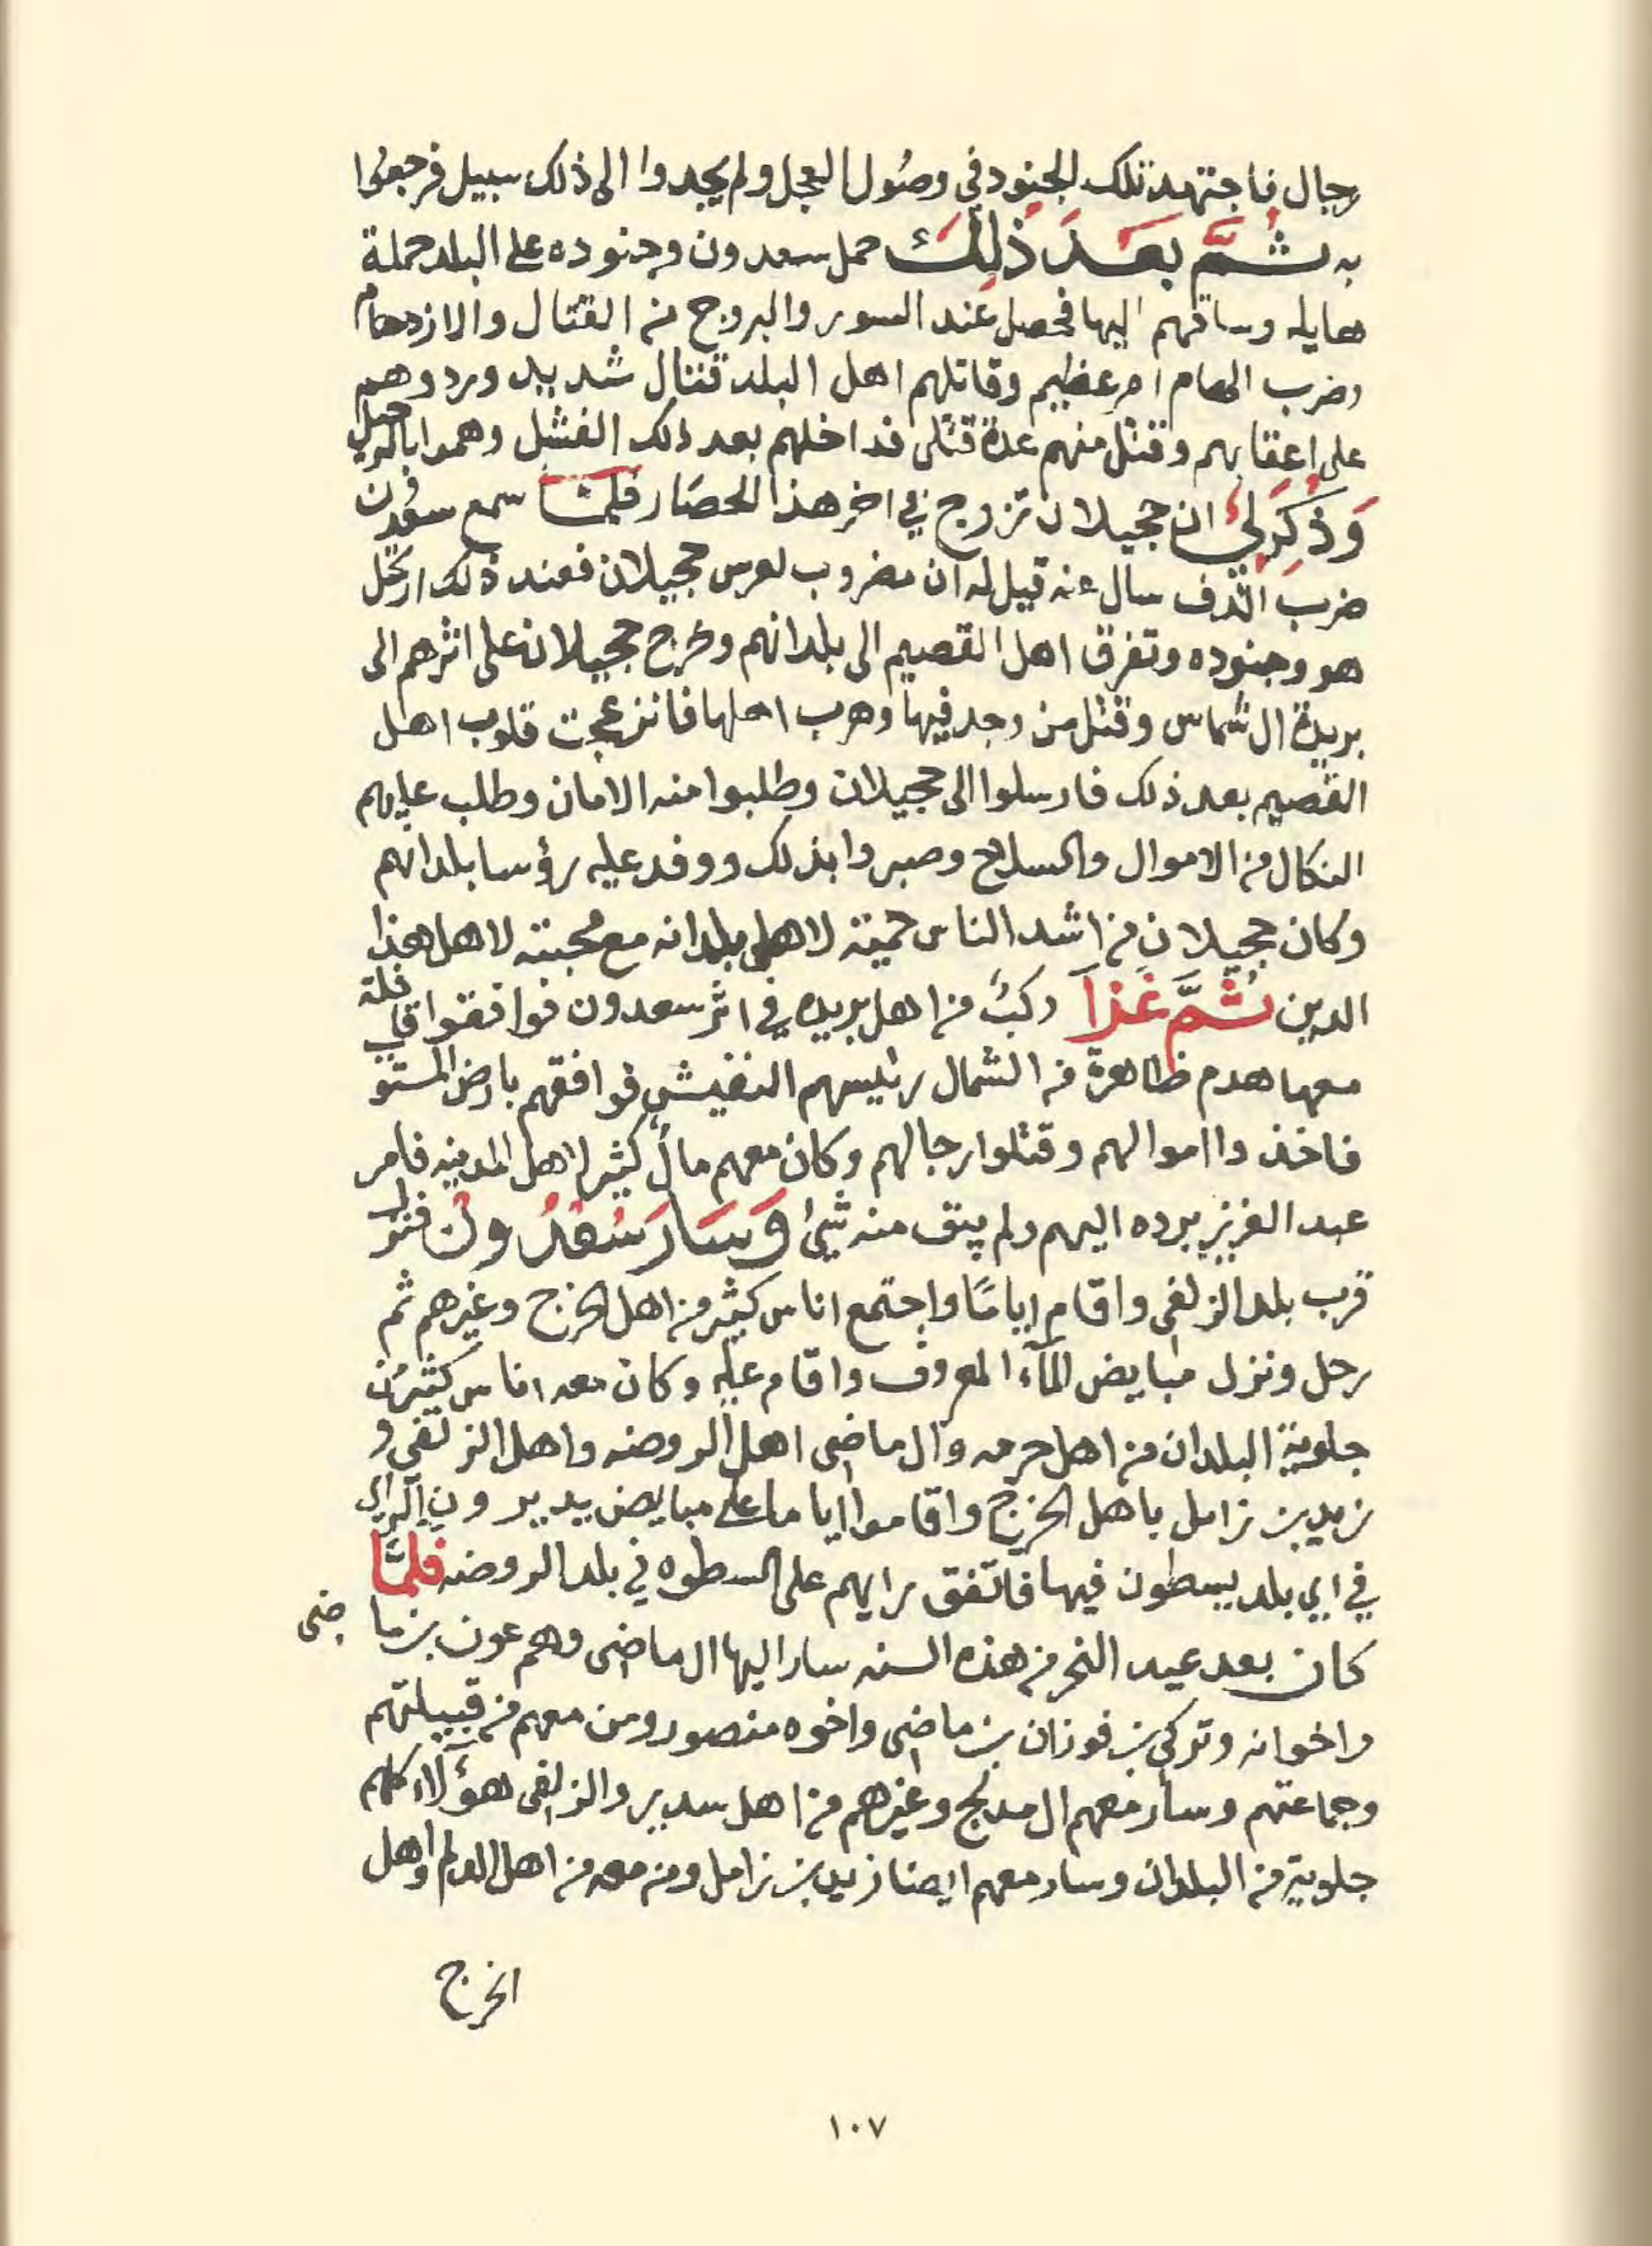 رجال فاجتهد تلك الجنود في وصول العجل ولم يجدوا الى ذلك سبيل فرجعوا
به ثُمَّ بَعَدَ ذَلِكَ حمل سعدون وجنوده على البلد حملة
هايله وساقهم اليها فحصل عند السور والبروج من القتال والازدهام
وضرب الهام امر عظيم وقاتلهم اهل البلد قتال شديد وردوهم
على اعقابهم وقتل منهم عدة قتلى فداخلهم بعد ذلك الفشل وهموا بالرحيل
وَذُكِرَ لِي ان حجيلان تزوج في اخر هذا الحصار فَلَمَّا سمع سعدون
ضرب الدف سال عنه قيل له ان مضروب لعرس حجيلان فعند ذلك ارتحل
هو وجنوده وتفرق اهل القصيم الى بلدانهم وخرج حجيلان على اثرهم الى
بريدة ال شماس وقتل من وجد فيها وهرب اهلها فانزعجت قلوب اهل
القصيم بعد ذلك فارسلوا الى حجيلان وطلبوا منه الامان وطلب عليهم
النكال من الاموال والسلاح وصبروا بذلك ووفد عليه رؤسا بلدانهم
وكان حجيلان من اشد الناس حميته لاهل بلدانه مع محبته لاهل هذا
الدين ثُمَّ غَزَا ركبٌ من اهل بريده في اثر سعدون فوافقوا قافلة
معها هدم ظاهرة من الشمال رئيسهم النفيشي فوافقهم بارض المستو
فاخذوا اموالهم وقتلوا رجالهم وكان معهم مالٌ كثير لاهل المدينه فامر
عبد العزيز برده اليهم ولم يبق منه شيئ وَسَارَ سَعْدُونُ فنزل
قرب بلد الزلفى واقام ايامًا واجتمع اناس كثير من اهل الخرج وغيرهم ثم
رحل ونزل مبايض المآء المعروف واقام عليه وكان معه اناس كثير من
جلوية البلدان من اهل حرمه وال ماضى اهل الروضه واهل الزلفى و
زيد بن زامل باهل الخرج واقاموا اياما على مبايض يديرون الراي
في اي بلد يسطون فيها فاتفق رايهم على السطوه في بلد الروضه فَلَمَّا
كان بعد عيد النحر من هذه السنه سار اليها ال ماضى وهم عون بن ماضى
واخوانه وتركي بن فوزان بن ماضى واخوه منصور ومن معهم من قبيلتهم
وجماعتهم وسار معهم ال مدلج وغيرهم من اهل سدير والزلفى هؤلاء كلهم
جلوية من البلدان وسار معهم ايضا زيد بن زامل ومن معه من اهل الدلم واهل
الخرج
١٠٧